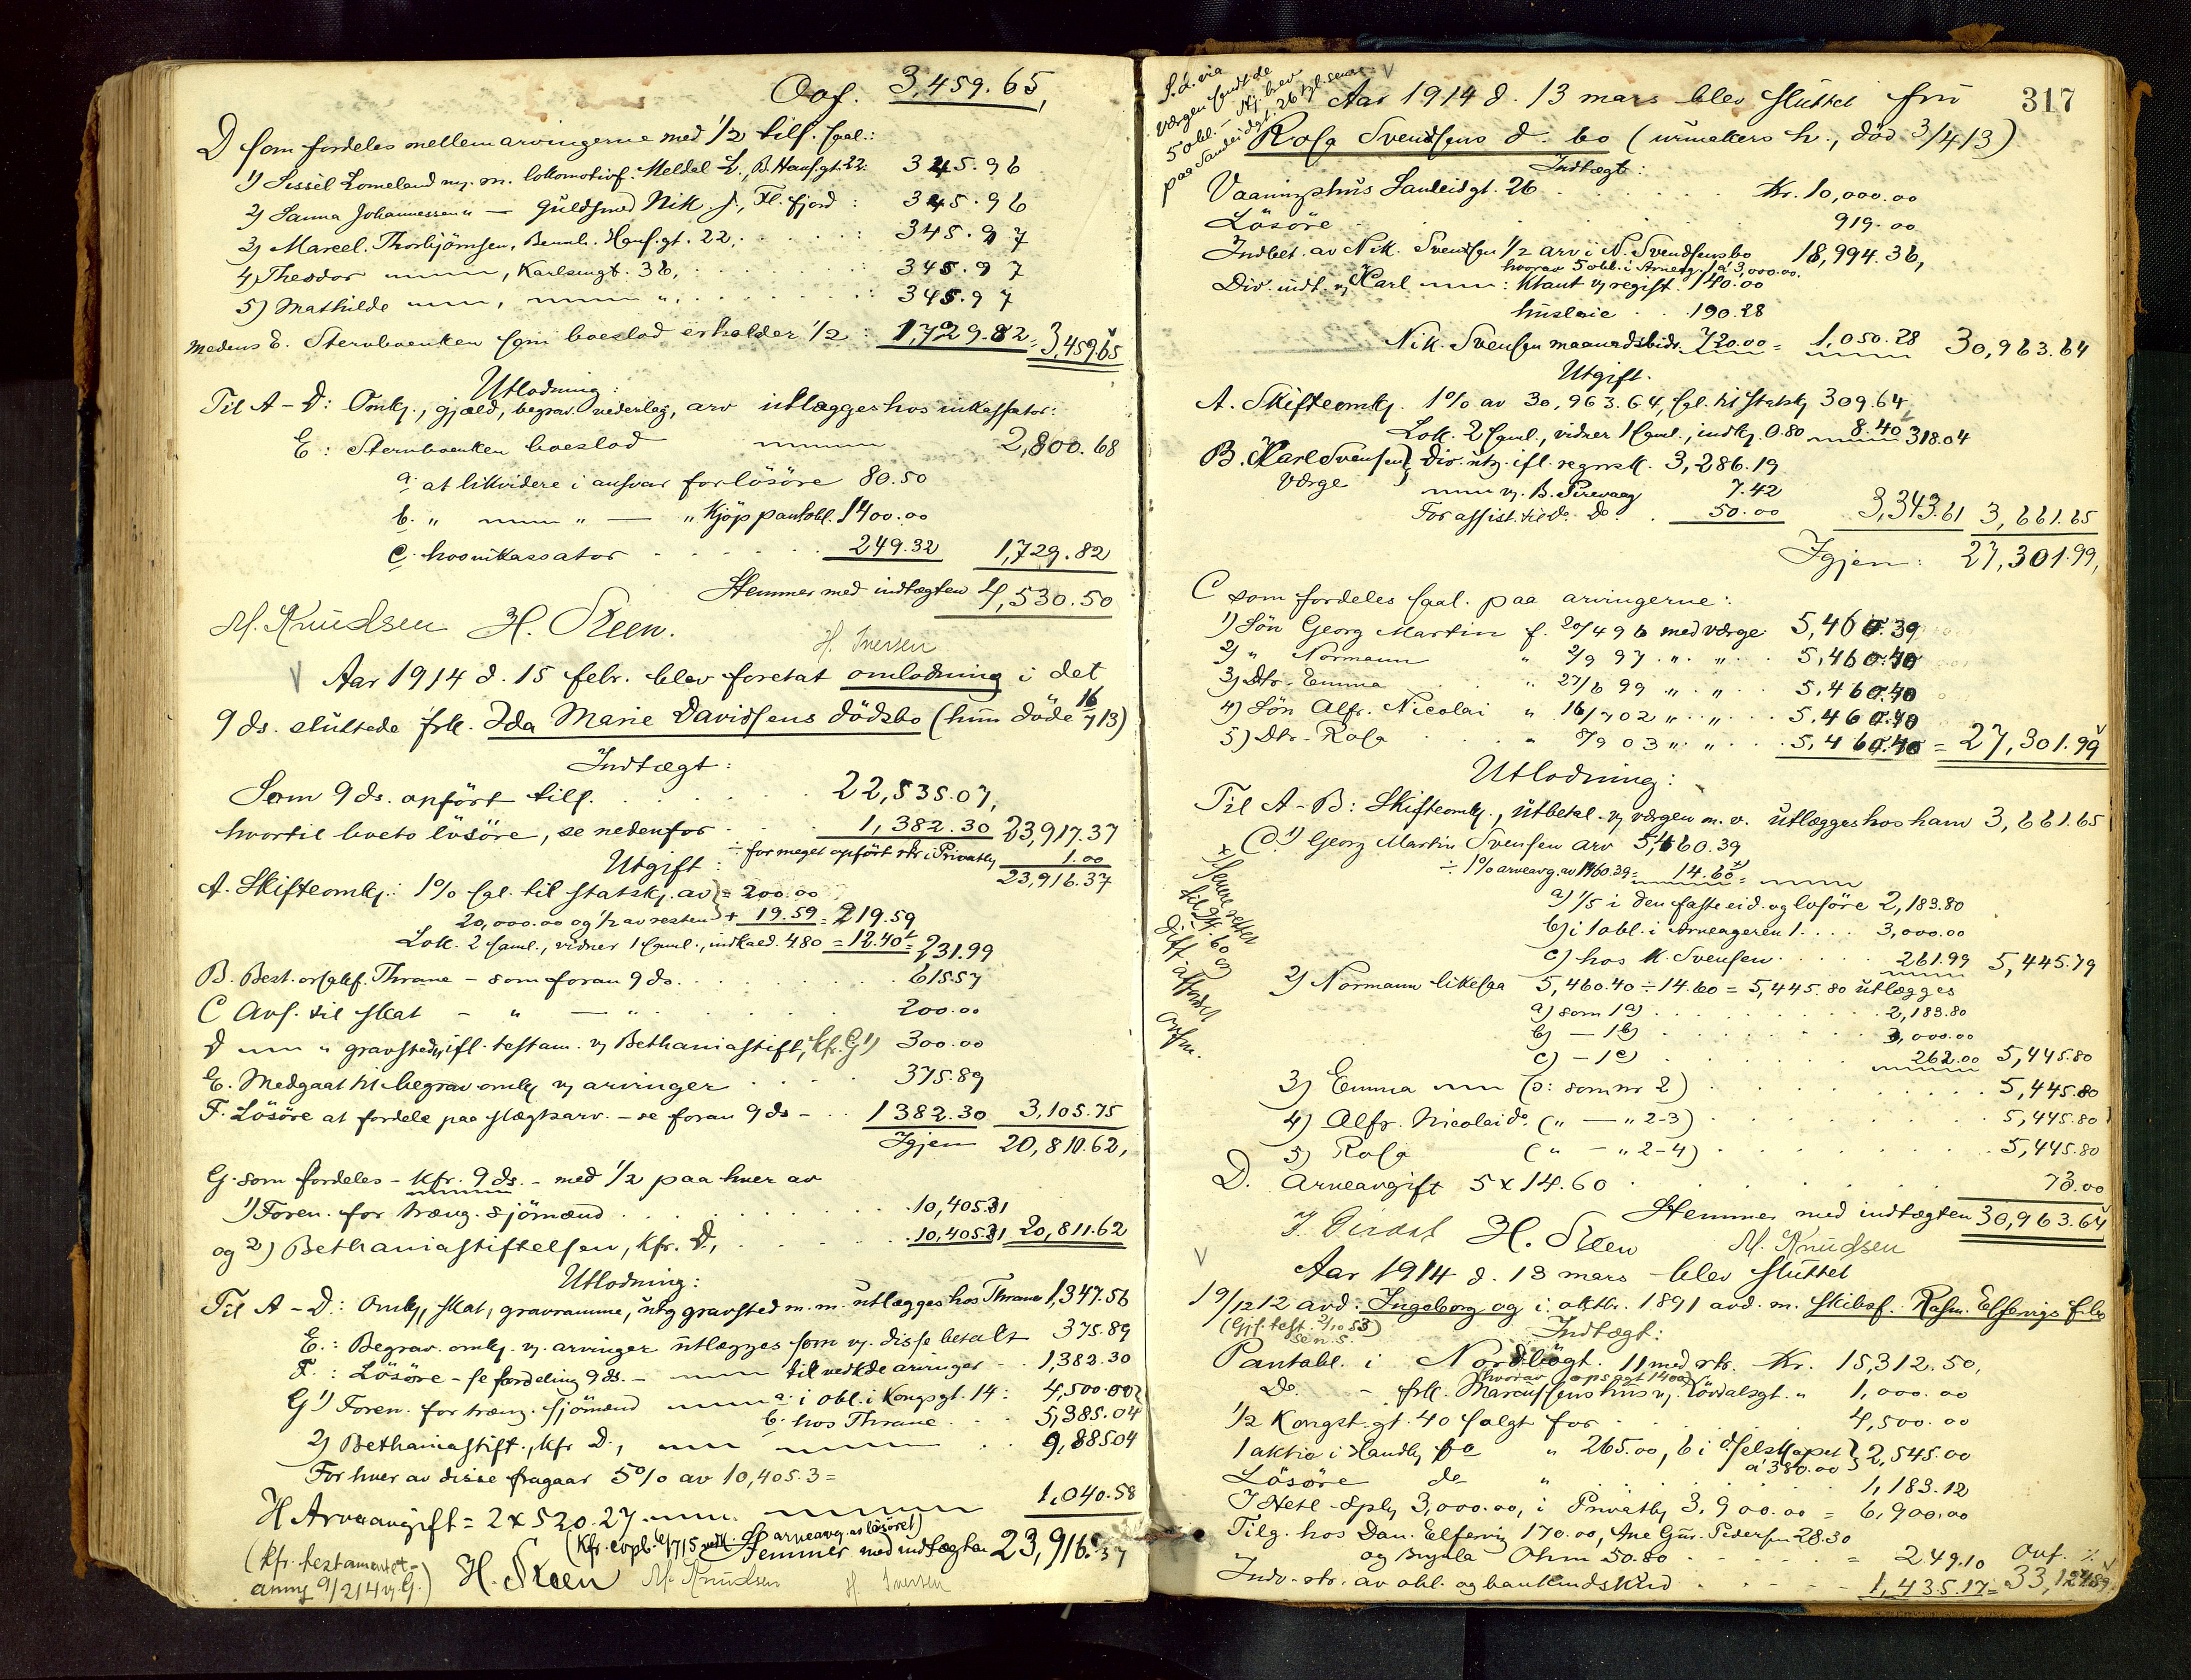 Ovf. 3,459.65,
D som fordeles mellem arvingerne med 1/2 tils. saal.:
1) Sissel Lomeland m. lokomotivf. Meldal L., B. Hansgt. 22: 345.96
2) Sanna Johannessen " — guldsmed Nik. J., Fl.fjord : 345.96
3) Marcel. Thorbjörnsen, Bernh. Hansgt. 22, 345.97
4) Theodor —, Karlsmgt. 36, 345.97
5) Mathilde —, — " 345.97
medens E. Stervboenken som boeslod erholder 1/2 : 1,729.82 = 3,459.65
Utlodning:
Til A - D: Omk., gjæld, begrav. vederlag, arv utlægges hos inkassator:
E: Stervboenken boeslod 2,800.68
a. at likvidere i ansvar for lösöre 80.50
b. " — " — " Kjöp pantobl. 1400.00
c. hos inkassator 249.32 1,729.82
Stemmer med indtægten 4,530.50
M. Knudsen H. Steen.
H. Iversen
Aar 1914 d. 15 febr. blev foretat omlodning i det
9 ds. sluttede frk. Ida Marie Davidsens dödsbo (hun döde 16/7 13)
Indtægt:
Som 9 ds. opfört tils. 22,535.07,
hvortil boets lösöre, se nedenfor 1,382.30 23,917.37
÷ for meget opfört rtr. i Privatbk 1.00
Utgift: 23,916.37
A. Skifteomk.: 1% sgl. til statsk. av = 200.00
20,000.00 og 1/2 av resten + 19.59 = 219.59
Lok. 2 saml., vidner 1 saml., indkald. 4.80 = 12.40 = 231.99
B. Best. orsakf. Thrane - som foran 9 ds. 615.57
C Avs. til skat - " — " 200.00
D — " gravsted ifl. testam. v Bethaniastift, kfr. G 1) 300.00
E. Medgaat til begrav omk v arvinger 375.89
F. Lösöre at fordele paa slægtsarv. - se foran 9 ds - 1382.30 3,105.75
Igjen 20,810.62,
G. som fordeles - kfr. 9 ds. - med 1/2 paa hver av
1) Foren. for træng. sjömænd 10,405.31
og 2) Bethaniastiftelsen, kfr. D, 10,405.31 20,811.62
Utlodning:
Til A - D.: Omk, skat, gravramme, utg gravsted m. m. utlægges hos Thrane 1,347.56
E.: Begrav. omk. v. arvinger utlægges som v. disse betalt 375.89
F. : Lösöre - se fordeling 9 ds. - — til vedkde arvinger 1,382.30
G 1) Foren. for træng. sjömænd — a. i obl. i Kongsgt. 14: 4,500.00
b. hos Thrane 5,385.04
2) Bethaniastift., kfr D., — 9,885.04
For hver av disse fragaar 5% av 10,405.3 =
H Arveavgift = 2 x 520.27 — 1,040.58
(kfr. evpl. 6/7 15 arveavg. av lösöret)
Stemmer med indtægten 23,916.37
(kfr. testamentet
9/2 14 v G.) H. Steen M. Knudsen H. Iversen
317
værgen sendt de
5 obl. - brev
paa Sandeidgt. 26
Aar 1914 d. 13 mars blev sluttet fru
Rosa Svendsens d. bo (urmakers h., död 3/4 13)
Indtægt:
Vaaningshus Sandeidgt. 26 Kr. 10,000.00
Lösöre 919.00
Indbet. av Nik. Svendsen 1/2 arv i N. Svendsens bo 18,994.36,
hvorav 5 obl. i Arneag. 1 à 3,000.00.
Div. indt. v Karl —: Ktant v regist. 140.00
husleie 190.28
Nik. Svensen maanedsbidr. 720.00 = 1,050.28 30,963.64
Utgift.
A. Skifteomk. 1% av 30,963.64, sgl. til statsk 309.64
Lok. 2 saml., vidner 1 saml., indk. 0.80 8.40 318.04
B. Karl Svensen, div. utg. ifl. regnsk. 3,286.19
Værge — v. B. Pirevaag 7.42
For assist. til do. Do. 50.00 3,343.61 3,661.65
Igjen: 27,301.99,
C som fordeles saal. paa arvingerne:
1) Sön Georg Martin f. 20/4 96 med værge 5,460.39
2) " Normann " 2/9 97 " " 5,460.40
3) Dtr. Emma " 27/6 99 " " 5,460.40
4) Sön Alfr. Nicolai " 16/7 02 " " 5,460.40
5) Dtr. Rosa " 8/9 03 " " 5,460.40 = 27,301.99
Utlodning:
Til A - B: Skifteomk., utbetal. v værgen m. v. utlægges hos ham 3,661.65
C. 1) Georg Martin Svensen arv 5,460.39
÷ 1% arveavg. av 1460.39 = 14.60 x) =
a) 1/5 i den faste eid. og lösöre 2,183.80
b) i 1 obl. i Arneageren 1. 3,000.00
c) hos K. Svensen 261.99 5,445.79
2) Normann likesaa 5,460.40 ÷ 14.60 = 5,445.80 utlægges
a) som 1a) 2,183.80
b) — 1b) 3,000.00
c) — 1c) 262.00 5,445.80
3) Emma — (o: som nr 2) 5,445.80
4) Alfr. Nicolai do. (" — " 2-3) 5,445.80
5) Rosa (" — " 2-4) 5,445.80
D. Arveavgift 5 x 14.60 73.00
Stemmer med indtægten 30,963.64
H. Steen M. Knudsen
Aar 1914 d. 13 mars blev sluttet
19/12 12 avd. Ingeborg og i oktbr. 1891 avd. m. skibsf. Rasm. Elfervigs
(Gjs. test. 2/10 53)
Indtægt:
Pantobl. i Nordbögt. 11 med rtr. Kr. 15,312.50,
Do. - frk. Marcussens hus v. Lövdalsgt. " 1,000.00
1/2 Kongst.gt. 40 solgt for 4,500.00
1 aktie i Handbk fo " 265.00, 6 i dselskapet à 380.00 2,545.00
Lösöre do " 1,183.12
I Hetl. Spbk 3,000.00, i Privatbk 3,900.00 = 6,900.00
Tilg. hos Dan. Elfervig 170.00, Ane Gur. Pedersen 28.30
og Bryula Ohm 50.80 = 249.10 Ovf.
Indv. rtr. av obl. og bankindskud 1,435.17 = 33,124.89